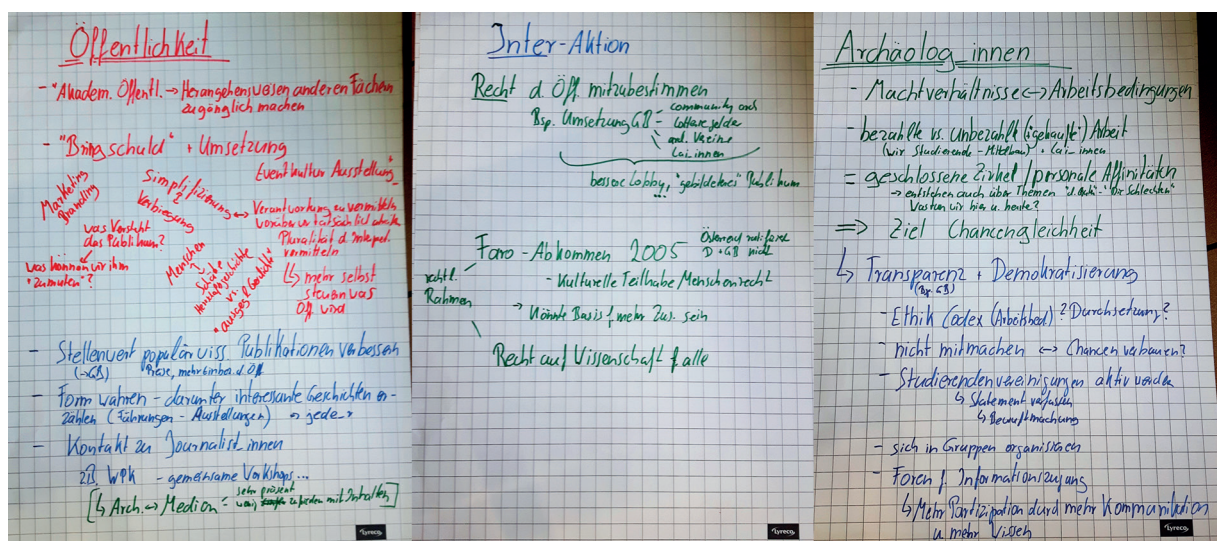 Öffentlichkeit
- "Akadem. Öffentl. → Herangehensweisen anderen Fächern
zugänglich machen
- "Bringschuld" + Umsetzung
Eventkultur Ausstellung"
Marketing
Branding
Simplifizierung
?
Verbiegung
↔ Verantwortung zu vermitteln
worüber wir tatsächlich
Pluralität d. Interpret.
vermitteln
↳ mehr selbst
steuern was
Öff. wird
was versteht
das Publikum?
was können wir ihm
"zumuten"?
Menschen
vs.
"ausgegr. Geschichte"
- Stellenwert populärwiss. Publikationen verbessern
(→GB) Preise, mehr Einbez. d. Öff
- Form wahren - darunter interessante Geschichten er-
zählen (Führungen - Ausstellungen) jede_r
- Kontakt zu Journalist_innen
z.B. WPK - gemeinsame Workshops...
[↳ Arch. ↔ Medien = sehr präsent
wenig zufrieden mit Inhalten]
Lyreco
Inter-Aktion
Recht d. Öff. mitzubestimmen
Bsp. Umsetzung GB - community arch
Lottare gelder
Vereine
Lai_innen
bessere Lobby, "gebildeteres" Publikum
...
Faro - Abkommen 2005
Österreich ratifiziert
D + GB nicht
rechtl.
Rahmen
- Kulturelle Teilhabe Menschenrecht
→ könnte Basis f. mehr Zus. sein
Recht auf Wissenschaft f. alle
Lyreco
Archäolog_innen
- Machtverhältnisse ↔ Arbeitsbedingungen
- bezahlte vs. Unbezahlte Arbeit
(wir Studierende - Mittelbau) + Lai_innen
= geschlossene Zirkel / personale Affinitäten
→ entstehen auch über Themen "Die Schlechten"
Was tun wir hier u. heute?
⇒ Ziel Chancengleichheit
↳ Transparenz + Demokratisierung
(Bsp. GB)
- Ethik Codex (Arbeitsbed.) ? Durchsetzung?
- nicht mitmachen ↔ Chancen verbauen?
- Studierendenvereinigungen aktiv werden
↳ Statement verfassen
↳ Bewusstmachung
- sich in Gruppen organisieren
- Foren f. Informationszugang
↳ Mehr Partizipation durch mehr Kommunikation
u mehr Wissen
Lyreco